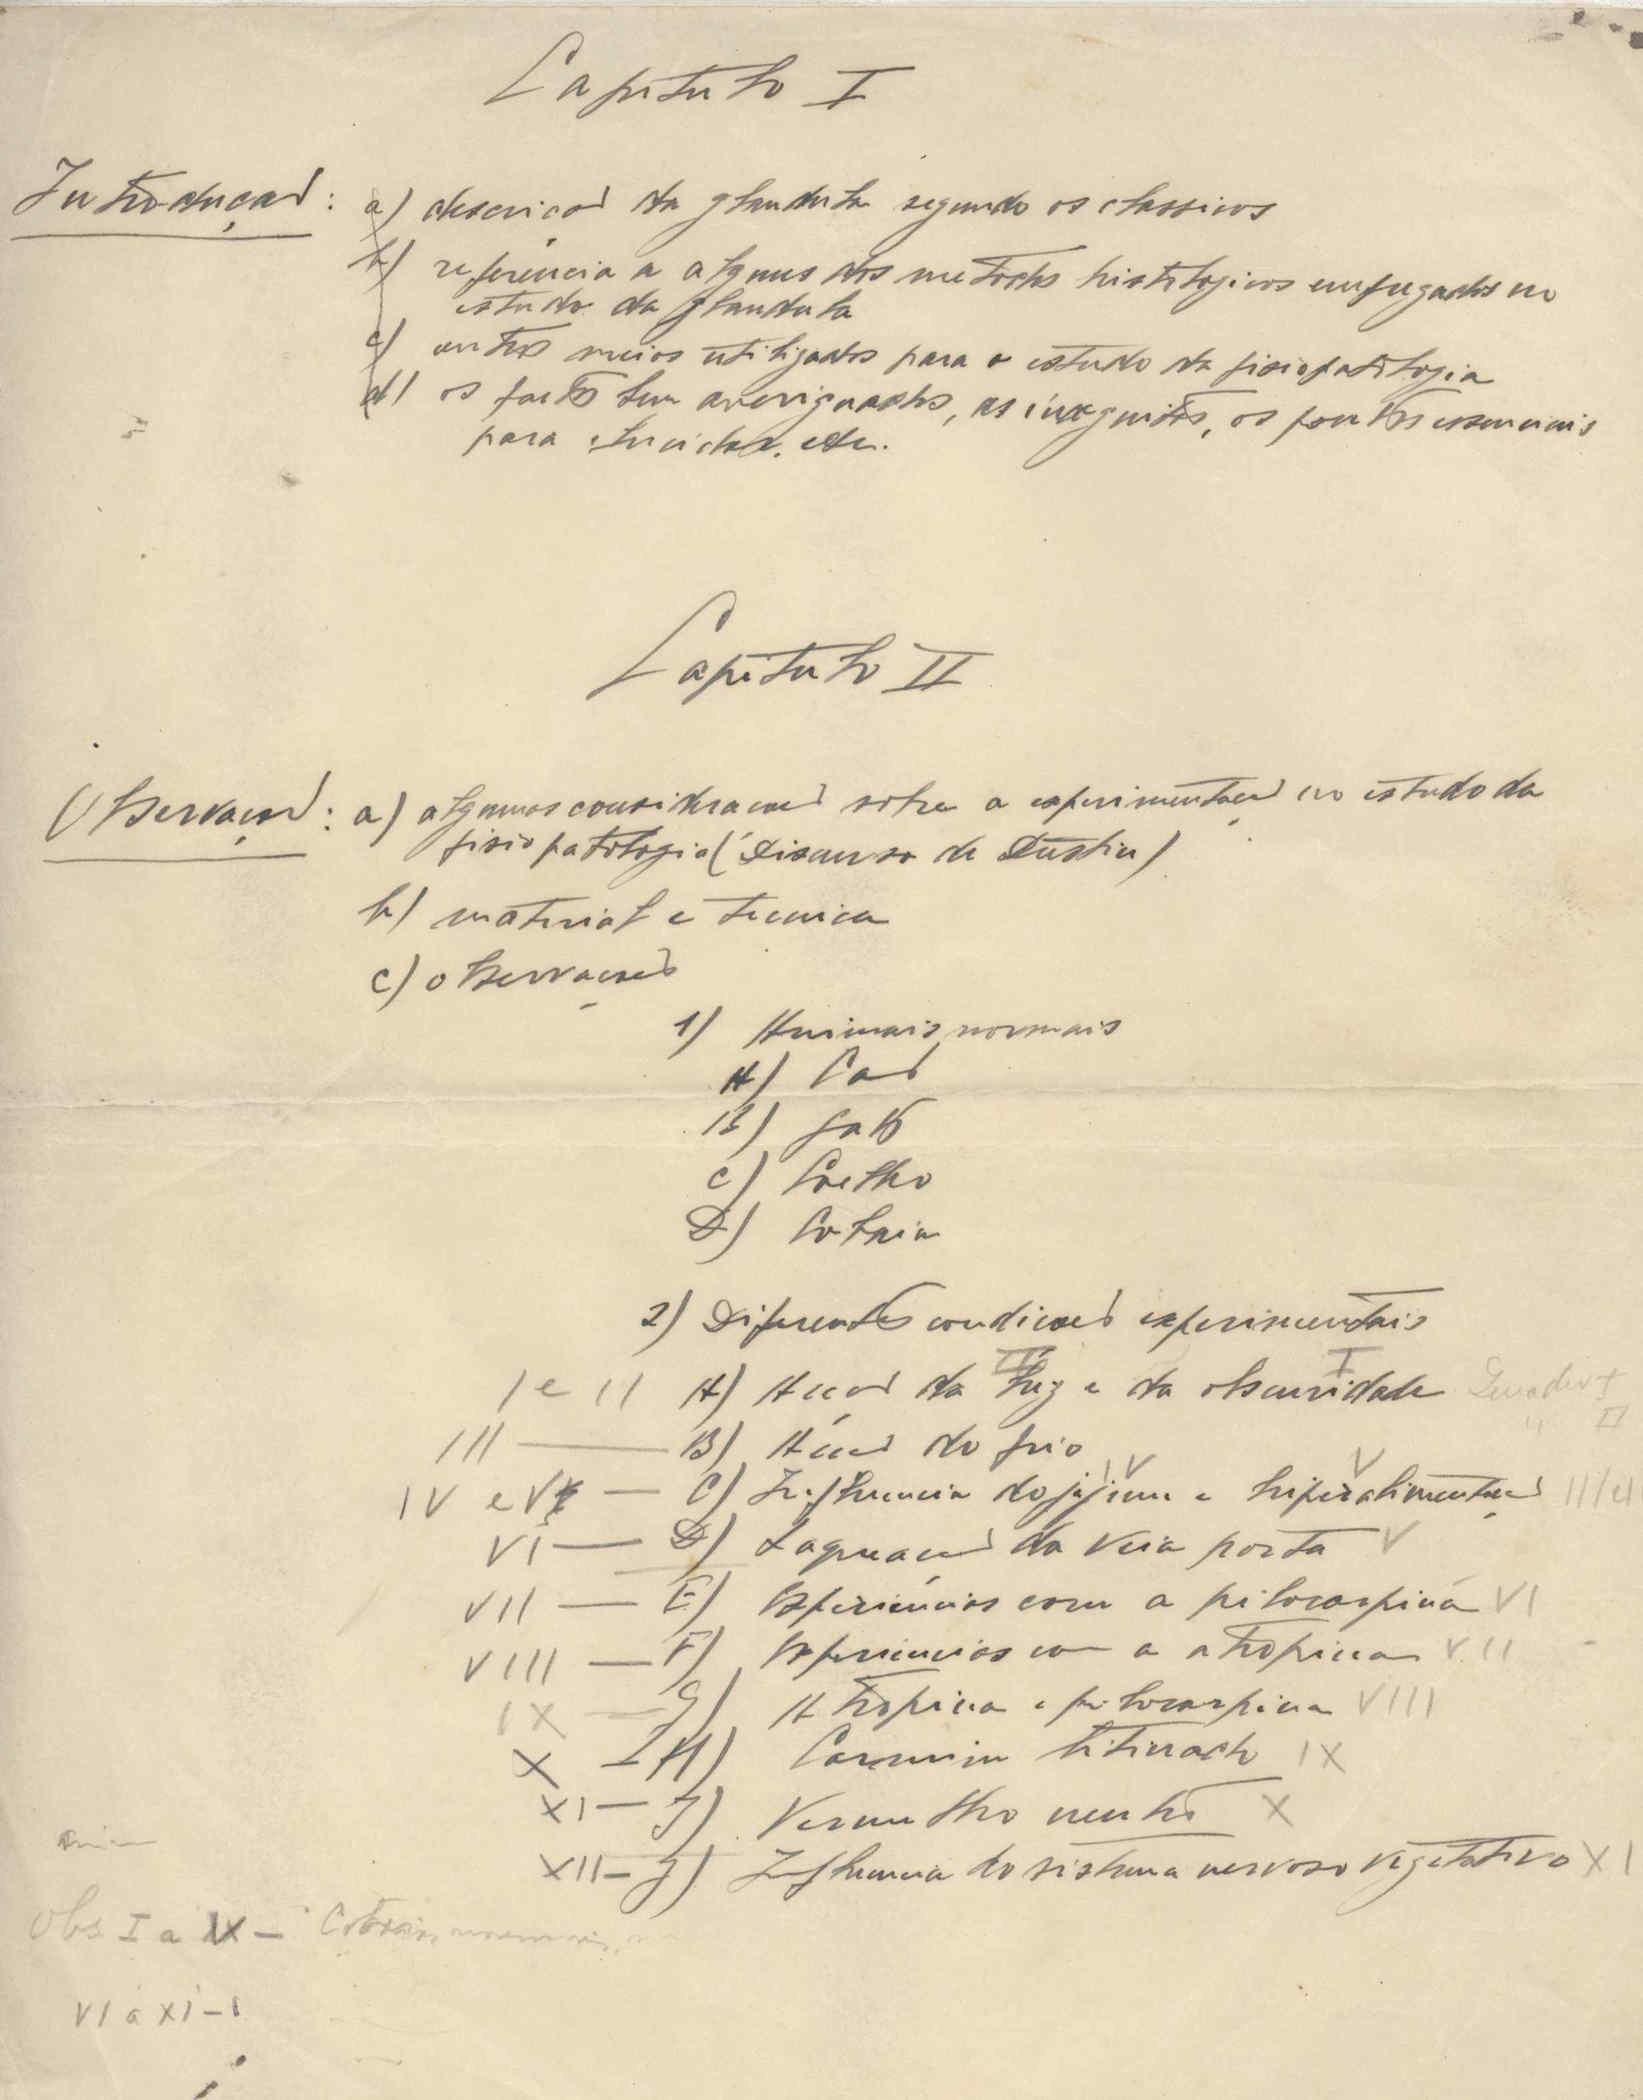 Capitulo I
Introdução: a) descrição da glandula segundo os classicos
b) referencia a alguns dos metodos histologicos empregados no
estudo da glandula
c) outros meios utilizados para o estudo da fisiopatologia
d) os factos bem averiguados, as incognitas, os pontos essenciais
para elucidar, etc.
Capitulo II
Observação: a) algumas considerações sobre a experimentação no estudo da
fisiopatologia (Discurso de Dustin)
b) material e tecnica
c) observações
1) Animais normais
A) Cão
B) gato
C) Coelho
D) Cobaia
2) Diferentes condições experimentais
II I
I e II A) Acção da luz e da obscuridade
III — B) Acção do frio
IV V
IV e V — C) Influencia do jejum e hiperalimentação
VI — D) Laqueação da veia porta V
VII — E) Experiencias com a pilocarpina VI
VIII — F) Experiencias com a atropina VII
IX — G) Atropina e pilocarpina VIII
X — H) Carmim litinado IX
XI — I) Vermelho neutro X
XII — J) Influencia do sistema nervoso vegetativo XI
Obs I a IX — Cobaias normais
VI a XI —